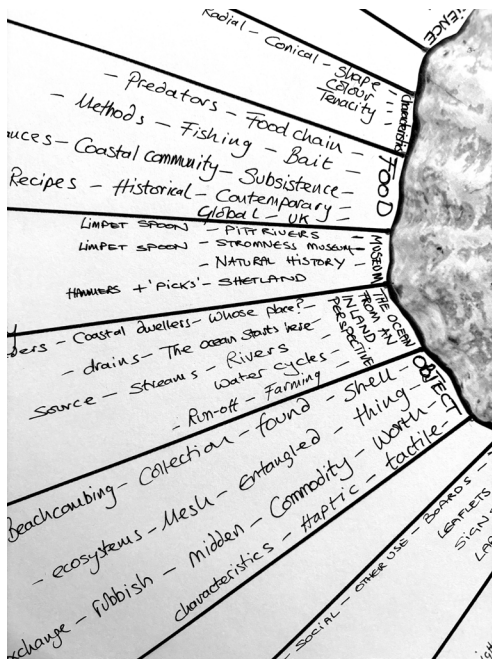 IENCE
Radial - Conical - Shape -
Colour -
Tenacity -
Characteristics
- Predators - Food chain -
- Methods - Fishing - Bait -
Coastal community - Subsistence -
Recipes - Historical - Contemporary -
Global - UK -
FOOD
LIMPET SPOON - PITT RIVERS -
LIMPET SPOON - STROMNESS MUSEUM -
- NATURAL HISTORY -
HAMMERS + 'PICKS' - SHETLAND
MUSEUM
Coastal dwellers - Whose place? -
- drains - The ocean starts here -
Source - Streams - Rivers
Water cycles
- Run-off - Farming -
THE OCEAN
FROM AN
INLAND
PERSPECTIVE
Beachcombing - Collection - found - Shell -
- ecosystems - Mesh - entangled - thing -
xchange - rubbish - midden - Commodity - Worth -
characteristics - Haptic - tactile -
OBJECT
- SOCIAL - OTHER USE - BOARDS -
LEAFLETS
SIGN